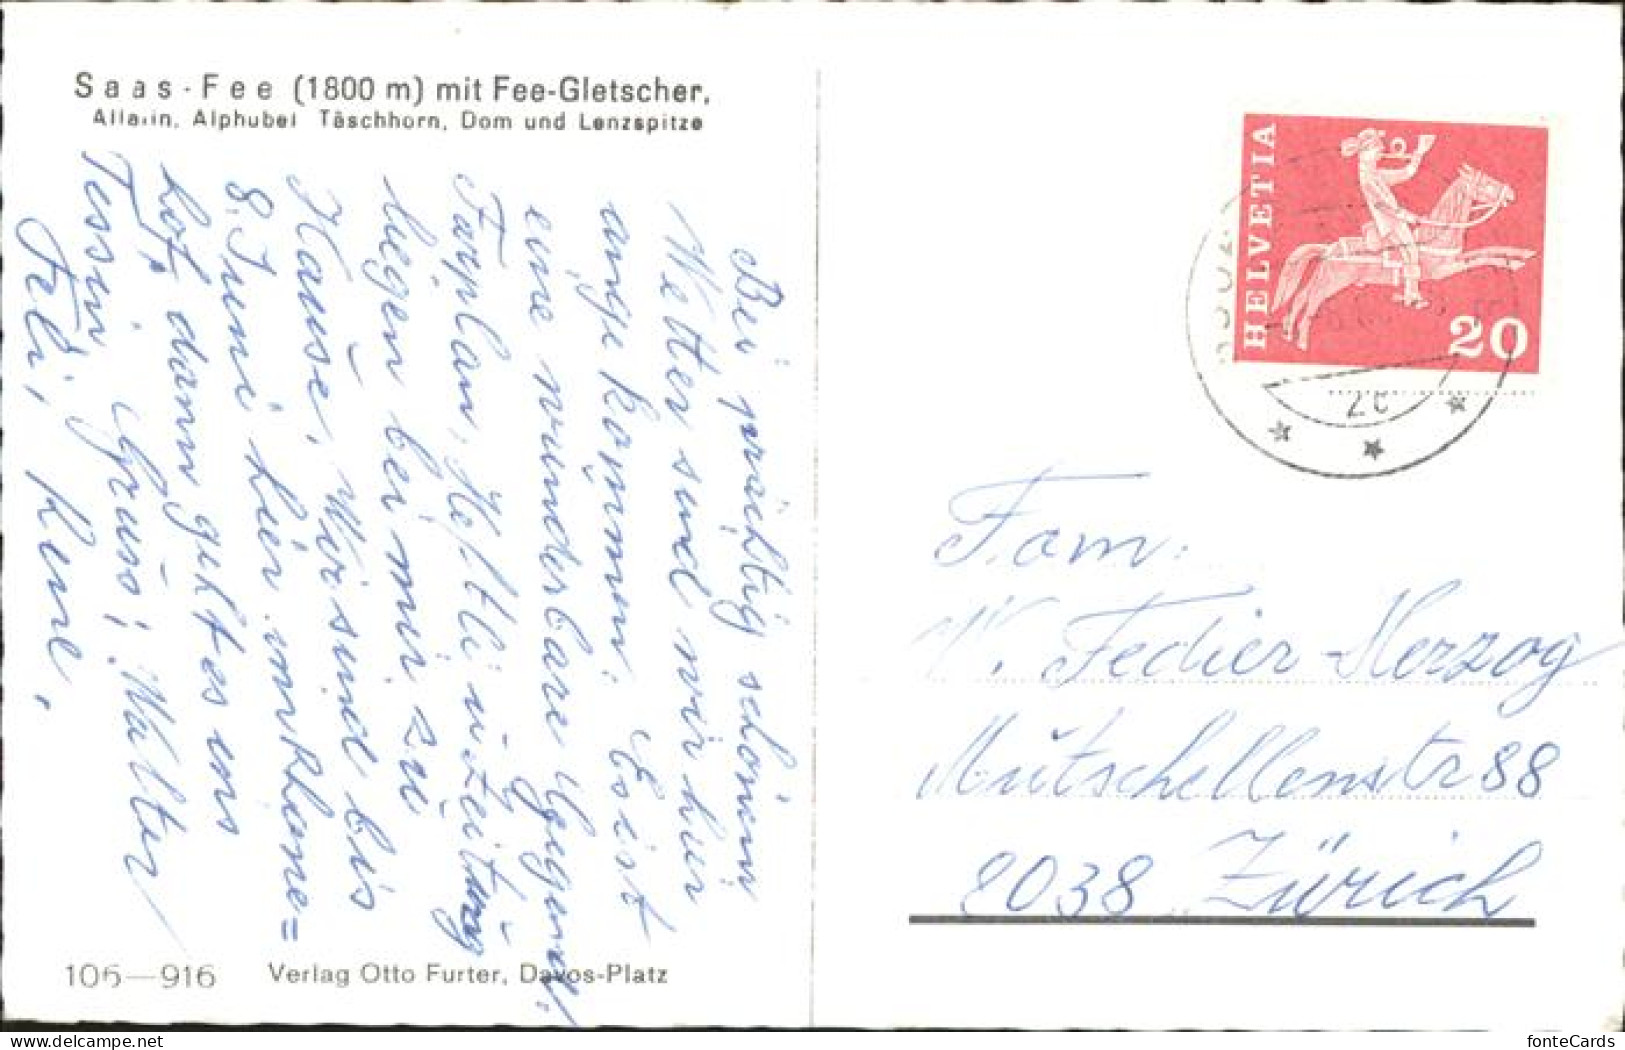 Saas-Fee (1800 m) mit Fee-Gletscher,
Allalin, Alphubel Täschhorn, Dom und Lenzspitze
Bei prächtig schönem
Wetter, sind wir hier
angekommen. Es ist
eine wunderbare Gegend.
Fahrplan, Heftli u. Zeitung
liegen bei mir zu
Hause. Wir sind bis
8. Juni hier
dann geht es ins
Tessin. Gruss; Walter
Rene.
105—916 Verlag Otto Furter, Davos-Platz
HELVETIA
20
Fam.
W. Fedier-Herzog
Mutschellenstr 88
8038 Zürich
fonteCards